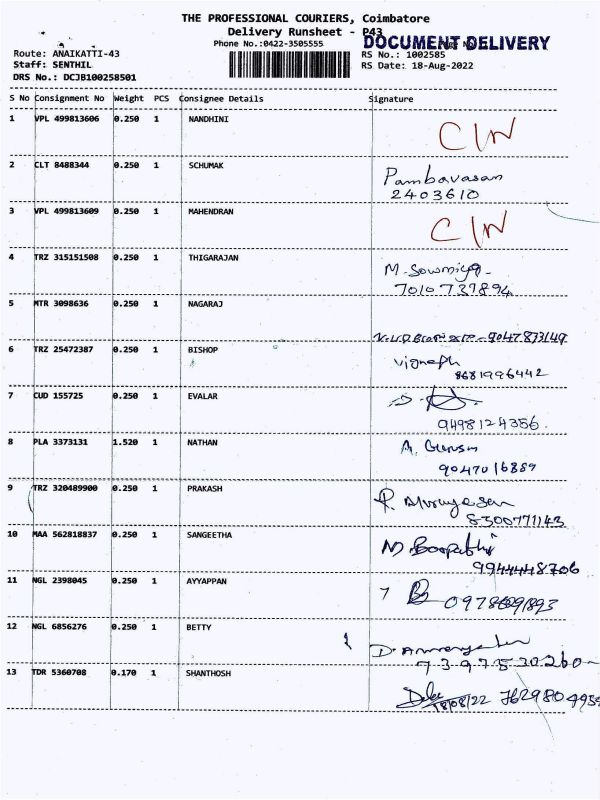 THE PROFESSIONAL COURIERS, Coimbatore
Delivery Runsheet - P43
Phone No.:0422-3505555 DOCUMENT DELIVERY
Route: ANAIKATTI-43 RS No.: 1002585
Staff: SENTHIL RS Date: 18-Aug-2022
DRS No.: DCJB100258501
S No Consignment No Weight PCS Consignee Details Signature
1 VPL 499813606 0.250 1 NANDHINI C/N
2 CLT 8488344 0.250 1 SCHUMAK Pambavasan
2403610
3 VPL 499813609 0.250 1 MAHENDRAN C/N
4 TRZ 315151508 0.250 1 THIGARAJAN M. Sowmiya
7010737894
5 MTR 3098636 0.250 1 NAGARAJ
9047833149
6 TRZ 25472387 0.250 1 BISHOP Vignesh
8681996442
7 CUD 155725 0.250 1 EVALAR
9498124356.
8 PLA 3373131 1.520 1 NATHAN A.
9047016889
9 TRZ 320489900 0.250 1 PRAKASH P.
8300771143
10 MAA 562818837 0.250 1 SANGEETHA M. Boopathi
9944448706
11 NGL 2398045 0.250 1 AYYAPPAN
12 NGL 6856276 0.250 1 BETTY
7397530260
13 TDR 5360708 0.170 1 SHANTHOSH
18/08/22